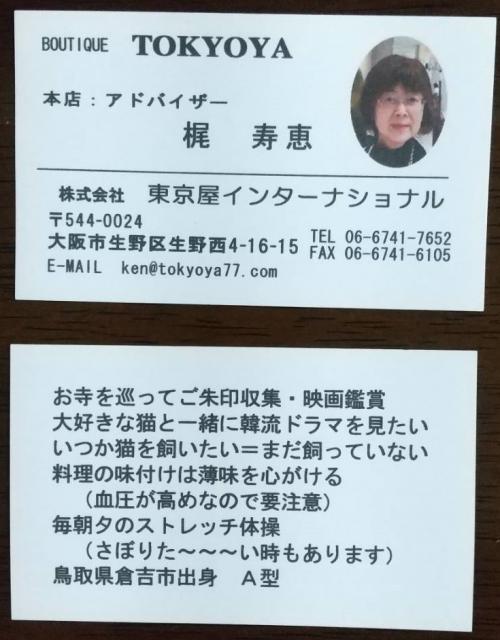 BOUTIQUE TOKYOYA
本店：アドバイザー
梶 寿恵
株式会社 東京屋インターナショナル
〒544-0024
大阪市生野区生野西4-16-15 TEL 06-6741-7652
E-MAIL ken@tokyoya77.com FAX 06-6741-6105
お寺を巡ってご朱印収集・映画鑑賞
大好きな猫と一緒に韓流ドラマを見たい
いつか猫を飼いたい＝まだ飼っていない
料理の味付けは薄味を心がける
（血圧が高めなので要注意）
毎朝夕のストレッチ体操
（さぼりた～～～い時もあります）
鳥取県倉吉市出身 Ａ型